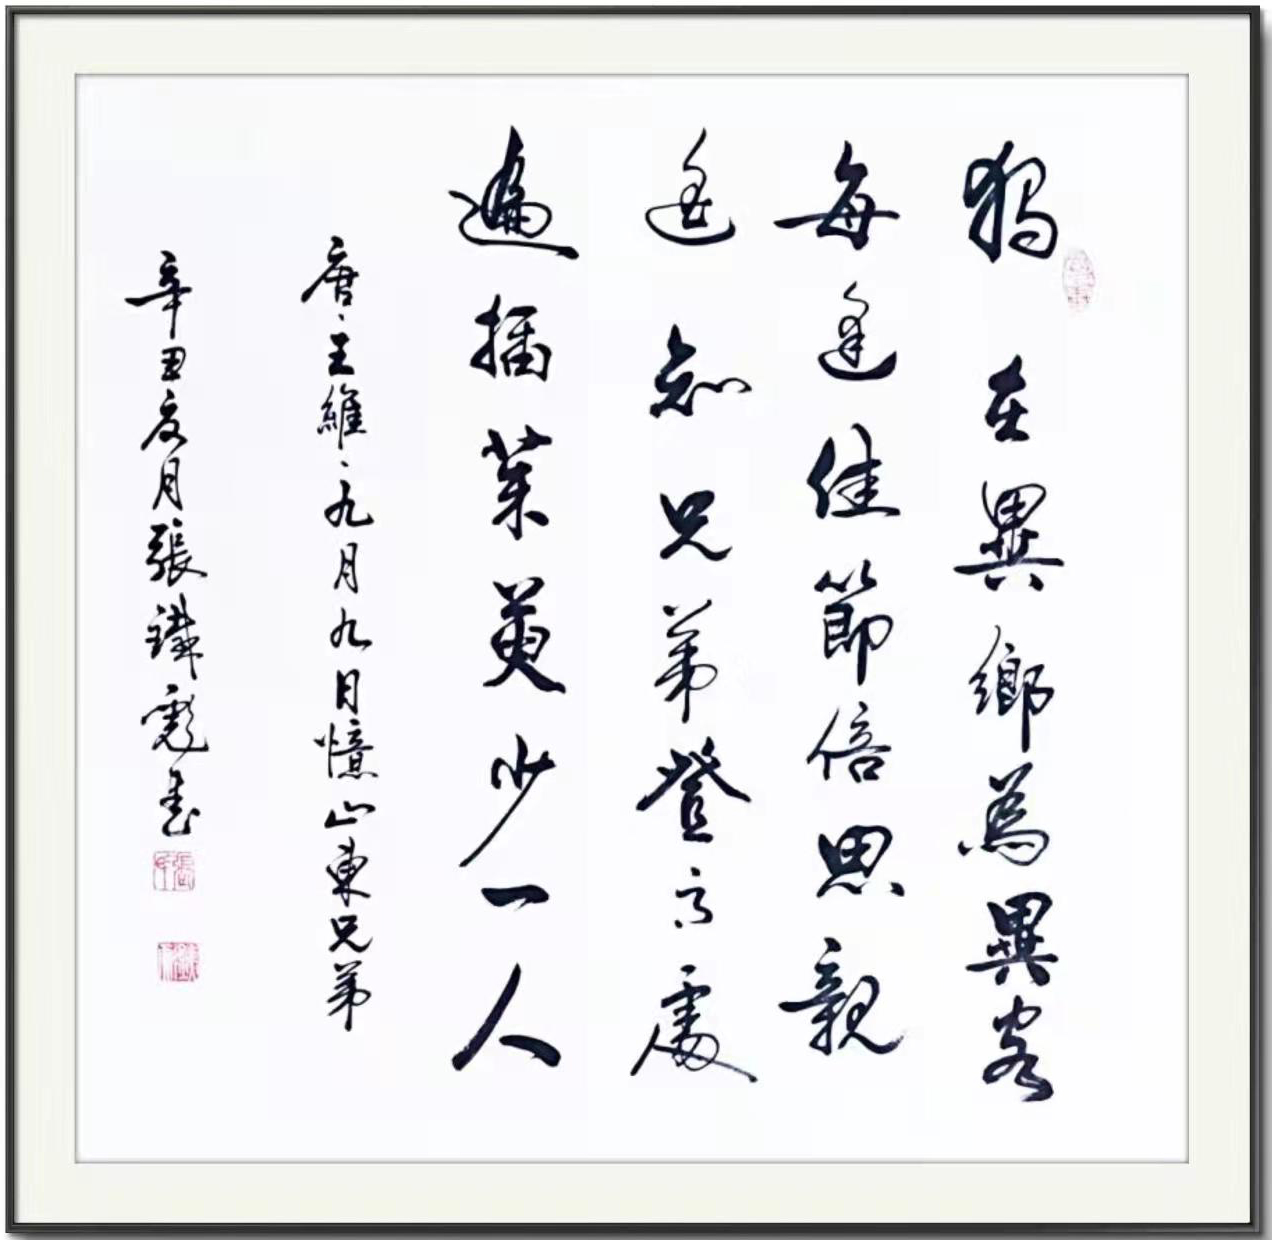 獨在異鄉為異客
每逢佳節倍思親
遙知兄弟登高處
遍插茱萸少一人
唐、王維、九月九日憶山東兄弟
辛丑夏月張彪書